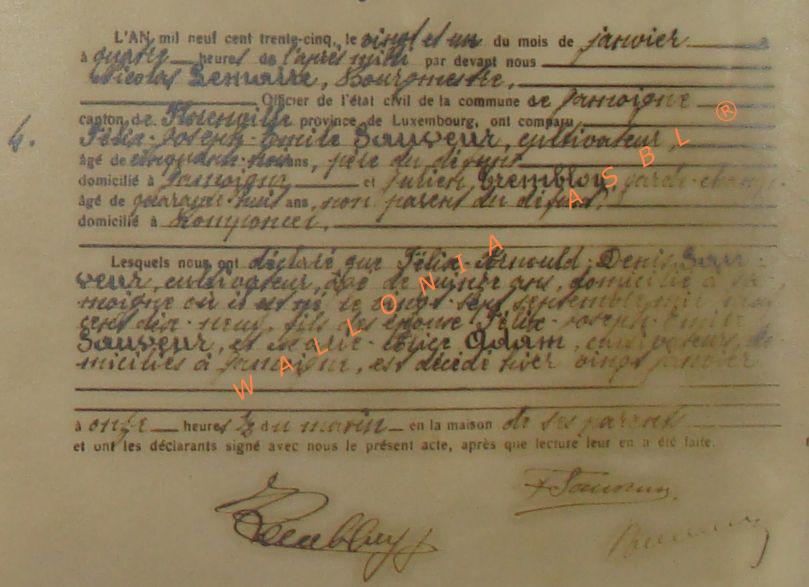 L'AN mil neuf cent trente-cinq, le vingt et un du mois de janvier
à quatre heures de l'après midi par devant nous
Nicolas Lemaire, Bourgmestre,
Officier de l'état civil de la commune de Jamoigne
canton de Florenville province de Luxembourg, ont comparu
6. Félix-Joseph-Emile Sauveur, cultivateur,
âgé de cinquante ans, père du défunt
domicilié à Jamoigne et Julien Trembloy, garde-champ
âgé de quarante huit ans, non parent du défunt,
domicilié à Romponcel.
Lesquels nous ont déclaré que Félix Denis Sau-
veur, cultivateur, âgé de quinze ans, domicilié à Ja-
moigne où il est né le vingt sept septembre mil neuf
cent dix-neuf, fils des époux Félix-Joseph-Emile
Sauveur, et Marie Adam, cultivateurs, do-
miciliés à Jamoigne, est décédé hier vingt janvier
à onze heures ½ du matin en la maison de ses parents
et ont les déclarants signé avec nous le présent acte, après que lecture leur en a été faite.
Trembloy F Sauveur
WALLONIA ASBL ®